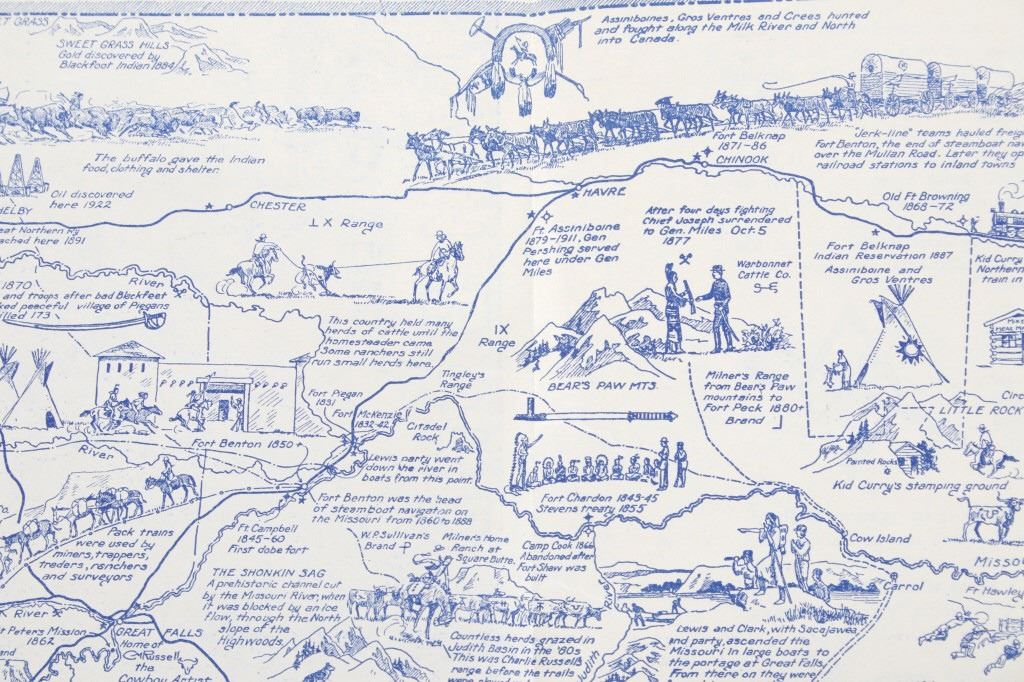 ET GRASS
SWEET GRASS HILLS
Gold discovered by
Blackfoot Indian 1884
Assiniboines, Gros Ventres and Crees hunted
and fought along the Milk River and North
into Canada.
The buffalo gave the Indian
food, clothing and shelter.
Oil discovered
here 1922
HELBY
eat Northern Ry
ached here 1891
CHESTER
⊥X Range
Fort Belknap
1871-86
CHINOOK
"Jerk-line" teams hauled freig
Fort Benton, the end of steamboat nav
over the Mullan Road. Later they op
railroad stations to inland towns
HAVRE
Ft Assiniboine
1879-1911, Gen
Pershing served
here under Gen
Miles
After four days fighting
Chief Joseph surrendered
to Gen. Miles Oct. 5
1877
Warbonnet
Cattle Co.
Old Ft Browning
1868-72
Fort Belknap
Indian Reservation 1887
Assiniboine and
Gros Ventres
Kid Curry
Northern
train in
1870
River
and troops after bad Blackfeet
ked peaceful village of Piegans
illed 173
This country held many
herds of cattle until the
homesteader came.
Some ranchers still
run small herds here.
IX
Range
BEAR'S PAW MTS.
Milner's Range
from Bear's Paw
mountains to
Fort Peck 1880+
Brand
Tingley's
Range
Fort Piegan
1831
Fort McKenzie
1832-42
Citadel
Rock
Fort Benton 1850+
River
Lewis party went
down the river in
boats from this point.
Fort Benton was the head
of steamboat navigation on
the Missouri from 1860 to 1888
Fort Chardon 1843-45
Stevens treaty 1855
LITTLE ROCK
Painted Rocks
Kid Curry's stamping ground
Circ
Co.
Pack trains
were used by
miners, trappers,
traders, ranchers
and surveyors
Ft Campbell
1845-60
First dobe fort
W.P. Sullivan's
Brand
Milner's Home
Ranch at
Square Butte.
Camp Cook 1866
Abandoned after
Fort Shaw was
built
Cow Island
MISSO
THE SHONKIN SAG
A prehistoric channel cut
by the Missouri River, when
it was blocked by an ice
flow, through the North
slope of the
Highwoods
Carrol
Ft Hawley
River
t Peters Mission
1862
GREAT FALLS
Home of
CM Russell
the
Cowboy Artist
Countless herds grazed in
Judith Basin in the '80s
This was Charlie Russell's
range before the trails
Judith
River
Lewis and Clark, with Sacajawea
and party, ascended the
Missouri in large boats to
the portage at Great Falls.
From there on they were